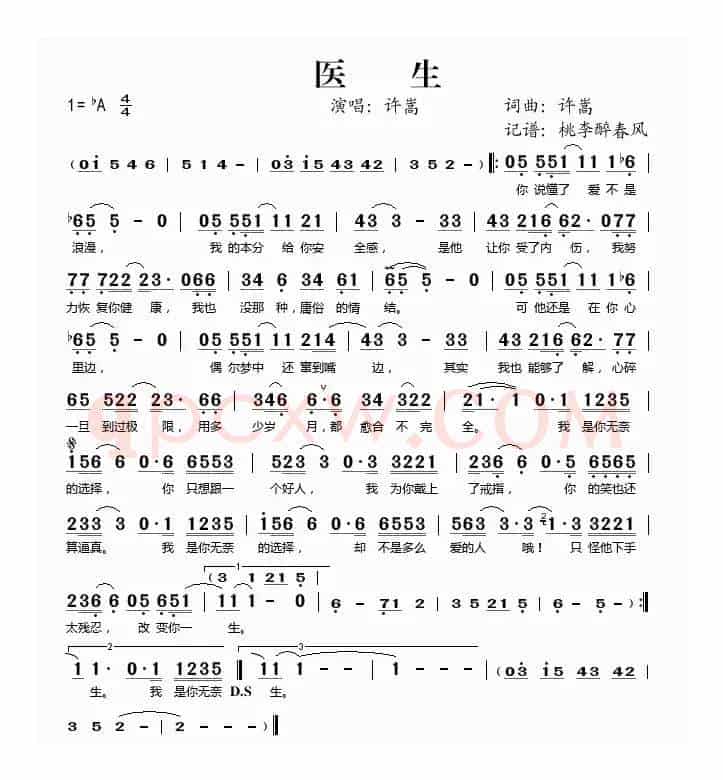 医 生
1=♭A 4/4 演唱：许嵩 词曲：许嵩
记谱：桃李醉春风
( 0 3 i 5 4 6 | 5 1 4 - | 0 3 i 5 4 3 4 2 | 3 5 2 - ) ‖: 05 551 11 1♭6 |
你 说懂了 爱 不 是
♭65 5 - 0 | 05 551 11 21 | 43 3 - 33 | 43 216 62· 077 |
浪漫， 我 的本分 给 你安 全感， 是他 让你 受了内 伤，我努
77 722 23· 066 | 34 6 34 61 | 65 5 - 0 | 05 551 11 1♭6 |
力恢 复你健 康，我也 没那 种，庸俗 的情 结。 可 他还是 在 你 心
♭65 5 - 0 | 05 551 11 214 | 43 3 - 33 | 43 216 62· 77 |
里边， 偶 尔梦中 还 窜到嘴 边， 其实 我也 能够了 解，心碎
65 522 23· 66 | 346 6·6 34 322 | 21· 1 0·1 1235 |
一旦 到过极 限，用多 少岁 月，都 愈合 不 完 全。 我 是你无奈
i56 6 0·6 6553 | 523 3 0·3 3221 | 236 6 0·5 6565 |
的选择， 你 只想跟一 个好人， 我 为你戴上 了戒指， 你 的笑也还
233 3 0·1 1235 | i56 6 0·6 6553 | 563 3·3 2 1·3 3221 |
算逼真。 我 是你无奈 的选择， 却 不是多么 爱的人 哦！ 只 怪他下手
1
(3 1 21 5)
236 6 05 651 | 11 1 - 0 | 6 - 71 2 | 3 5 21 5 | 6 - 5 - ) :‖
太残忍， 改 变你一 生。
2 3
1 1· 0·1 1235 ‖ 11 1 - - | 1 - - - | ( 0 3 i 5 4 3 4 2 |
生。 我 是你无奈 D.S 生。
3 5 2 - | 2 - - - ) ‖
qpcxw.COM